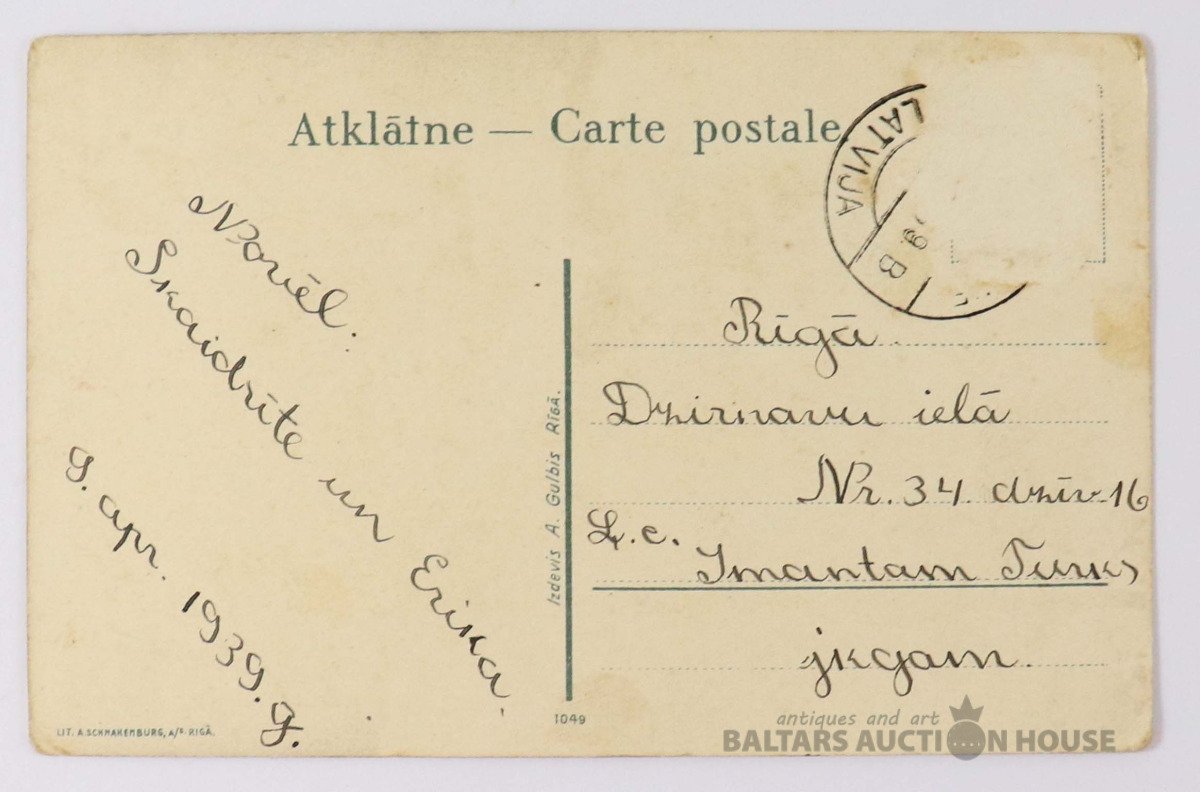 Atklātne — Carte postale
LATVIJA
9. B
Novēl.
Skaidrīte un Erika.
9. apr. 1939. g.
Rīgā
Dzirnavu ielā
Nr. 34 dzīv. 16
L. c. Imantam Turks
jkgam.
Izdevis A. Gulbis Rīgā.
1049
LIT. A.SCHNAKENBURG, A/S RIGĀ.
antiques and art
BALTARS AUCTION HOUSE